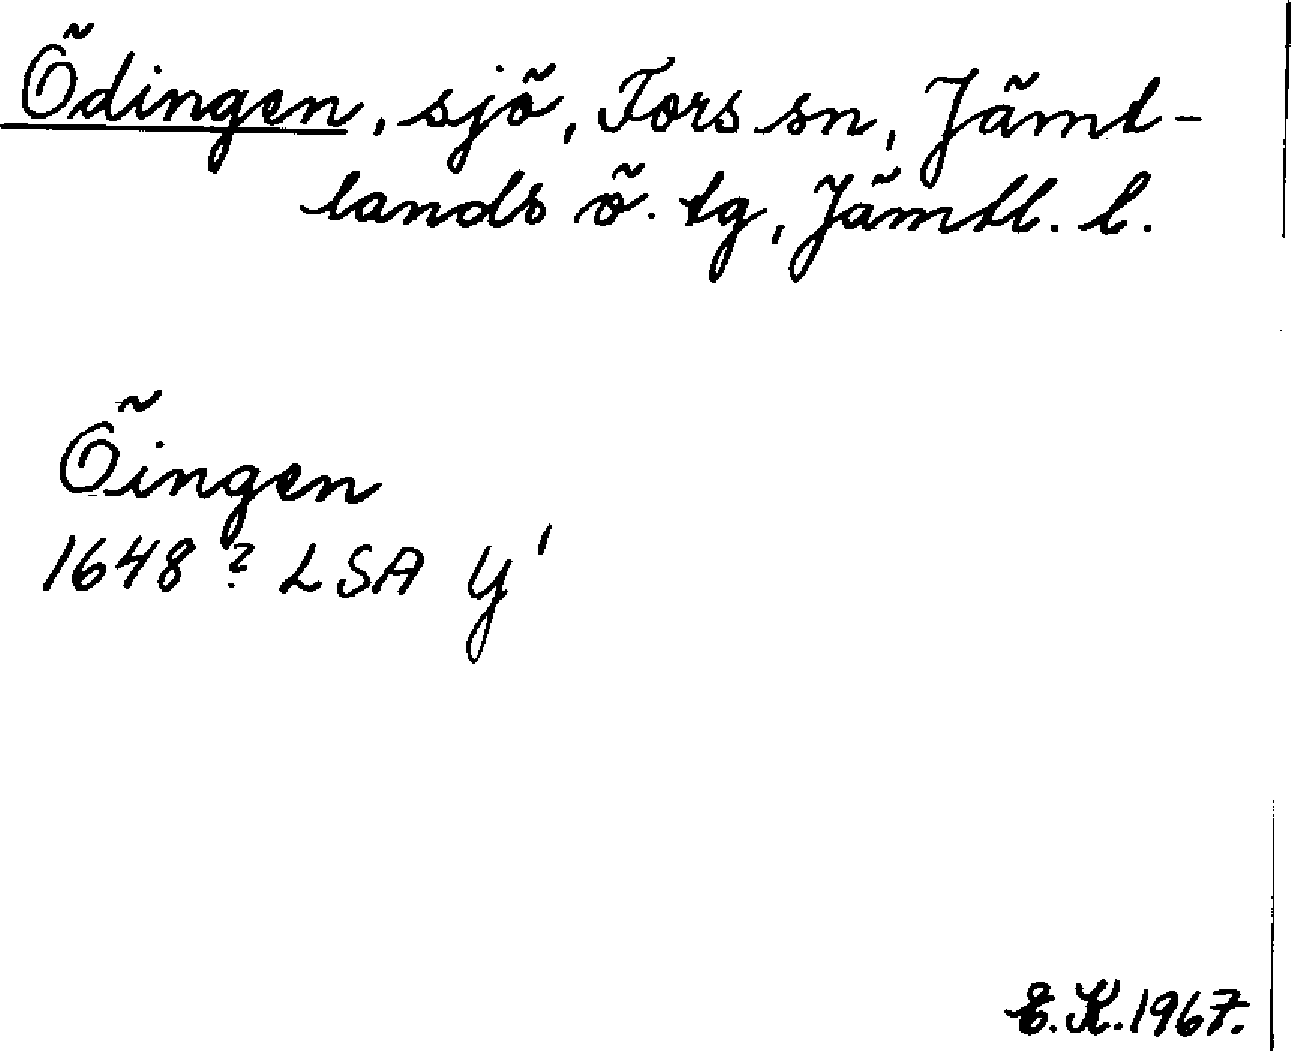 Ödingen, sjö, Fors sn, Jämt-
lands ö. tg, Jämtl. l.
Öingen
1648? LSA Y'
E.K. 1967.